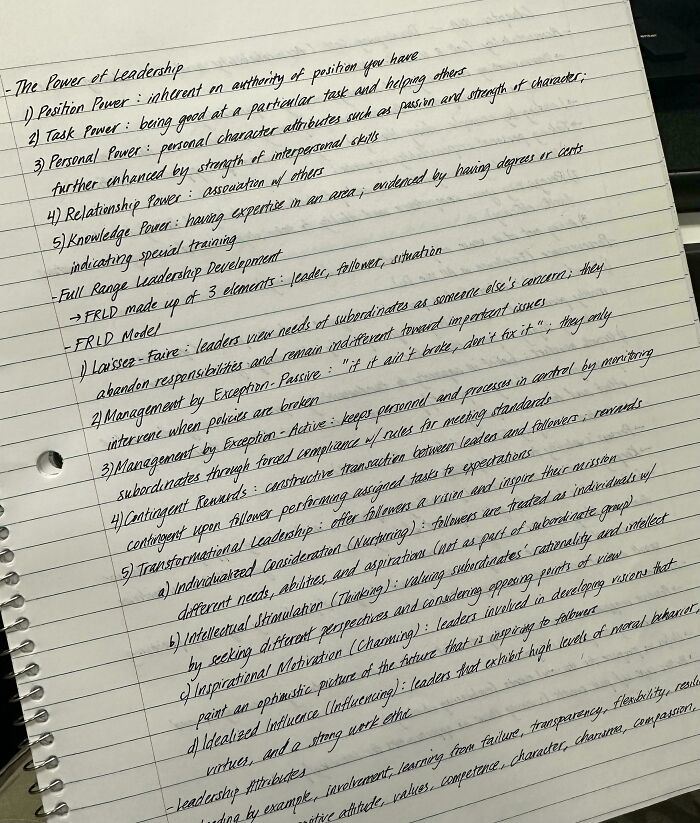 - The Power of Leadership
1) Position Power : inherent on authority of position you have
2) Task Power : being good at a particular task and helping others
3) Personal Power : personal character attributes such as passion and strength of character;
further enhanced by strength of interpersonal skills
4) Relationship Power : association w/ others
5) Knowledge Power : having expertise in an area ; evidenced by having degrees or certs
indicating special training
- Full Range Leadership Development
→ FRLD made up of 3 elements : leader, follower, situation
- FRLD Model
1) Laissez-Faire : leaders view needs of subordinates as someone else's concern ; they
abandon responsibilities and remain indifferent toward important issues
2) Management by Exception-Passive : "if it ain't broke, don't fix it" ; they only
intervene when policies are broken
3) Management by Exception - Active : keeps personnel and processes in control by monitoring
subordinates through forced compliance w/ rules for meeting standards
4) Contingent Rewards : constructive transaction between leaders and followers ; rewards
contingent upon follower performing assigned tasks to expectations
5) Transformational Leadership : offer followers a vision and inspire their mission
a) Individualized Consideration (Nurturing) : followers are treated as individuals w/
different needs, abilities, and aspirations (not as part of subordinate group)
b) Intellectual Stimulation (Thinking) : valuing subordinates' rationality and intellect
by seeking different perspectives and considering opposing points of view
c) Inspirational Motivation (Charming) : leaders involved in developing visions that
paint an optimistic picture of the future that is inspiring to followers
d) Idealized Influence (Influencing) : leaders that exhibit high levels of moral behavior
virtues, and a strong work ethic
- Leadership Attributes
by example, involvement, learning from failure, transparency, flexibility,
attitude, values, competence, character, charisma, compassion,